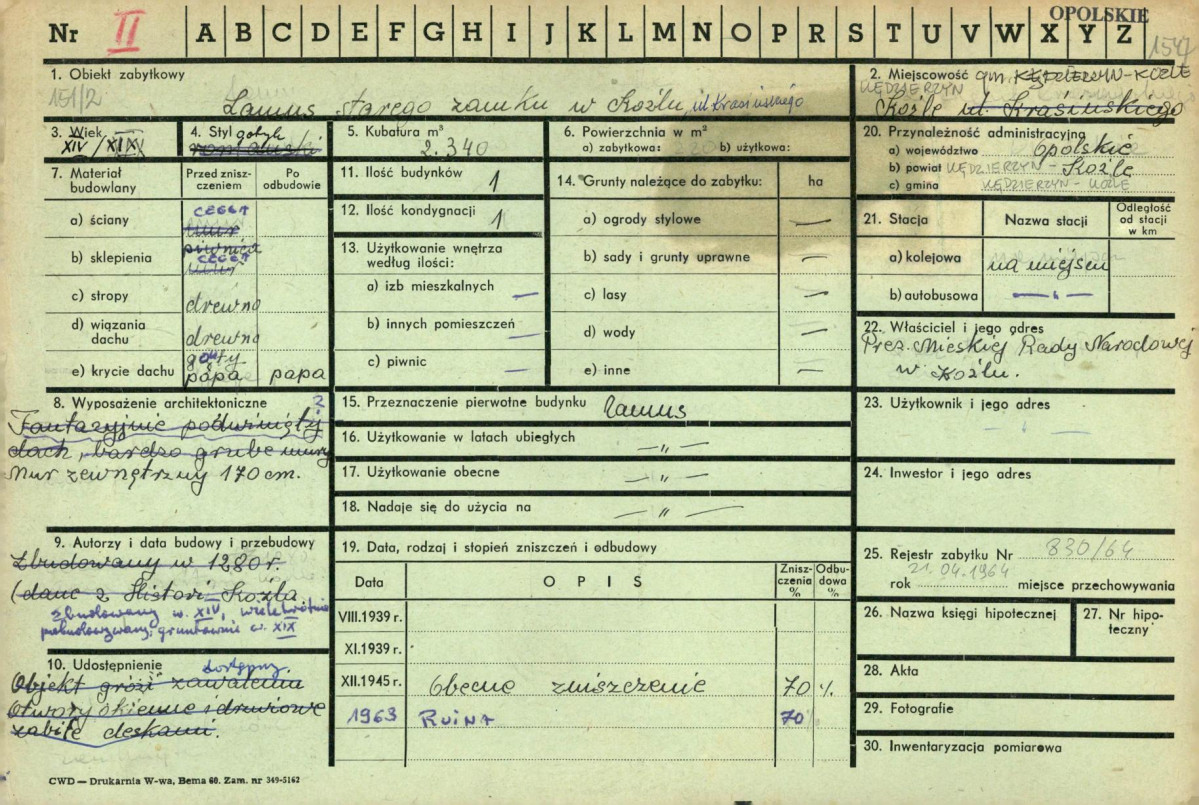 OPOLSKIE
Nr II A B C D E F G H I J K L M N O P R S T U V W X Y Z
1. Obiekt zabytkowy
151/2
Lamus starego zamku w Koźlu ul Krasińskiego
2. Miejscowość gm KĘDZIERZYN-KOŹLE
KĘDZIERZYN
Koźle ul. Krasińskiego
3. Wiek
XIV/XIX
4. Styl gotyk
romański
5. Kubatura m³
2.340
6. Powierzchnia w m²
a) zabytkowa: b) użytkowa:
7. Materiał budowlany
Przed znisz-
czeniem
Po
odbudowie
a) ściany
CEGŁA
mur
b) sklepienia
piwnica
CEGŁA
mur
c) stropy
drewno
d) wiązania
dachu
drewno
e) krycie dachu
gonty
papa papa
8. Wyposażenie architektoniczne
?
Fantazyjnie podwinięty
dach, bardzo grube mury
Mur zewnętrzny 170 cm.
9. Autorzy i data budowy i przebudowy
Zbudowany w 1280 r.
(dane z Histori Koźla
zbudowany w. XIV, wielokrotnie
przebudowywany, gruntownie w. XIX
10. Udostępnienie
dostępny.
Objekt grozi zawaleniem
Otwory okienne i drzwiowe
zabite deskami.
11. Ilość budynków 1
12. Ilość kondygnacji 1
13. Użytkowanie wnętrza
według ilości:
a) izb mieszkalnych —
b) innych pomieszczeń —
c) piwnic —
14. Grunty należące do zabytku: ha
a) ogrody stylowe —
b) sady i grunty uprawne —
c) lasy —
d) wody —
e) inne —
15. Przeznaczenie pierwotne budynku lamus
16. Użytkowanie w latach ubiegłych — „ —
17. Użytkowanie obecne — „ —
18. Nadaje się do użycia na — „ —
19. Data, rodzaj i stopień zniszczeń i odbudowy
Data OPIS Znisz-
czenia
% Odbu-
dowa
%
VIII.1939 r.
XI.1939 r.
XII.1945 r. Obecne zniszczenie 70 %.
1963 RUINA 70%
20. Przynależność administracyjna
a) województwo opolskie
b) powiat KĘDZIERZYN - Koźle
c) gmina KĘDZIERZYN - KOŹLE
21. Stacja
Nazwa stacji
Odległość
od stacji
w km
a) kolejowa na miejscu
b) autobusowa — „ —
22. Właściciel i jego adres
Prez. Mieskiej Rady Narodowej
w Koźlu.
23. Użytkownik i jego adres
— „ —
24. Inwestor i jego adres
25. Rejestr zabytku Nr 830/64
21.04.1964
rok miejsce przechowywania
26. Nazwa księgi hipotecznej
27. Nr hipo-
teczny
28. Akta
29. Fotografie
30. Inwentaryzacja pomiarowa
CWD — Drukarnia W-wa, Bema 60. Zam. nr 349-5162